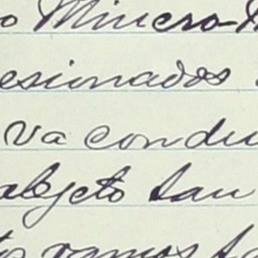 o Minero-M
esionados
va condu
objeto tan
ramos